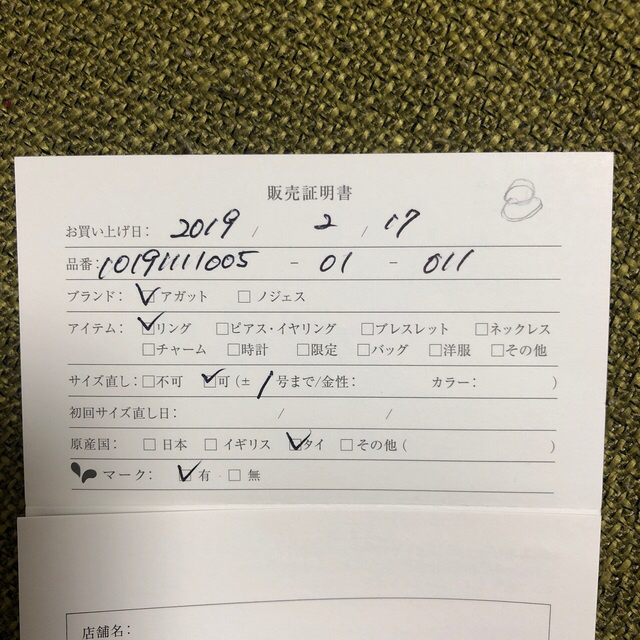 販売証明書
お買い上げ日： 2019 / 2 / 17
品番：10191111005 - 01 - 011
ブランド： ☑アガット □ノジェス
アイテム： ☑リング □ピアス・イヤリング □ブレスレット □ネックレス
□チャーム □時計 □限定 □バッグ □洋服 □その他
サイズ直し：□不可 ☑可（± 1号まで/金性： カラー： ）
初回サイズ直し日： / /
原産国： □日本 □イギリス ☑タイ □その他（ ）
マーク： ☑有 □無
店舗名：